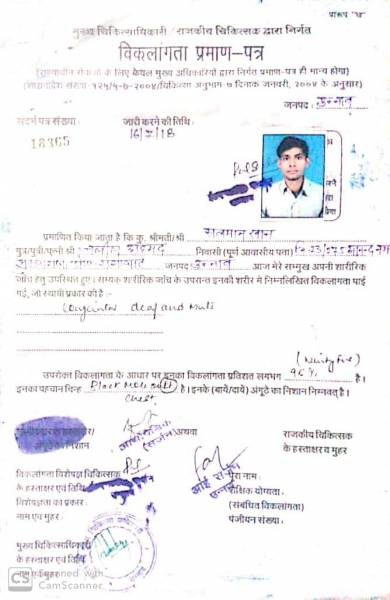 प्रारूप "ब"
मुख्य चिकित्साधिकारी / राजकीय चिकित्सक द्वारा निर्गत
विकलांगता प्रमाण-पत्र
(राज्याधीन सेवाओं के लिए केवल मुख्य अधिकारियों द्वारा निर्गत प्रमाण-पत्र ही मान्य होगा)
(शासनादेश संख्या १२५/५-७-२००४/चिकित्सा अनुभाग-७ दिनांक जनवरी, २००४ के अनुसार)
जनपद : उन्नाव
संदर्भ पत्र संख्या : जारी करने की तिथि :
18365 16/7/18
प्रमाणित किया जाता है कि कु. श्रीमती/श्री सलमान खान
पुत्र/पुत्री/पत्नी श्री अहमद निवासी (पूर्ण आवासीय पता)
जनपद उन्नाव आज मेरे सम्मुख अपनी शारीरिक
जाँच हेतु उपस्थित हुए। सम्यक शारीरिक जाँच के उपरान्त इनकी शरीर में निम्नलिखित विकलांगता पाई
गई, जो स्थायी प्रकार की है :-
deaf and Mute
उपरोक्त विकलांगता के आधार पर इनका विकलांगता प्रतिशत लगभग है।
इनका पहचान चिन्ह Black Mole on है। इनके (बायें/दायें) अंगूठे का निशान निम्नवत् है।
Chest
अथवा राजकीय चिकित्सक
के निशान के हस्ताक्षर व मुहर
विकलांगता विशेषज्ञ चिकित्सक पूरा नाम :
के हस्ताक्षर एवं तिथि शैक्षिक योग्यता :
विशेषज्ञता का प्रकार : (संबंधित विकलांगता)
नाम एवं मुहर : पंजीयन संख्या :
मुख्य चिकित्साधिकारी
के हस्ताक्षर एवं तिथि
नाम एवं मुहर :
CS Scanned with
CamScanner